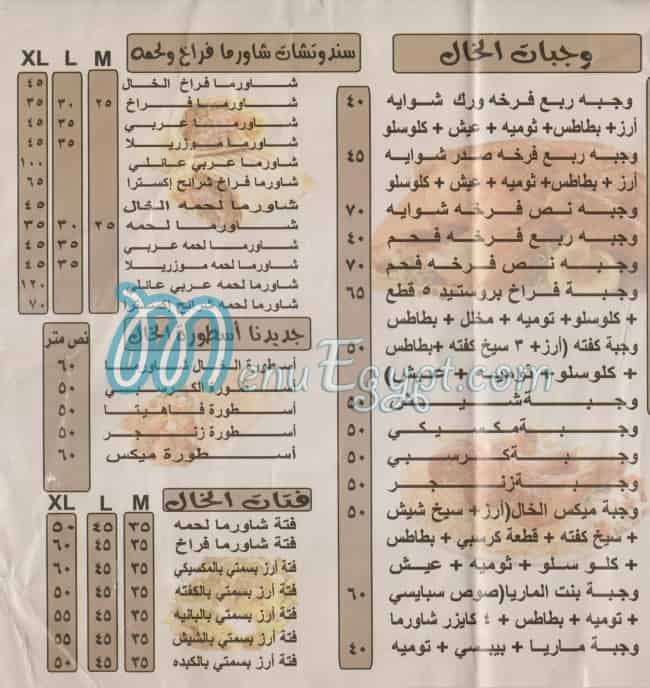 وجبات الخال
وجبه ربع فرخه ورك شوايه ٤٠
أرز+ بطاطس+ ثوميه + عيش + كلوسلو
وجبه ربع فرخه صدر شوايه ٤٥
أرز + بطاطس+ ثوميه + عيش + كلوسلو
وجبه نص فرخه شوايه ٧٠
وجبه ربع فرخه فحم ٤٠
وجبه نص فرخه فحم ٧٠
وجبة فراخ بروستيد ٥ قطع ٦٥
+ كلوسلو + توميه + مخلل + بطاطس
وجبة كفته (أرز+ ٣ سيخ كفته +بطاطس ٥٠
+ كلوسلو + ثوميه + عيش)
وجبة شيش ٥٠
وجبة مكسيكي ٥٠
وجبة كرسبي ٥٠
وجبة زنجر ٥٠
وجبة ميكس الخال(أرز + سيخ شيش ٥٠
+ سيخ كفته + قطعة كرسبي + بطاطس
+ كلو سلو + ثوميه + عيش
وجبة بنت الماريا(صوص سبايسي ٦٠
+ توميه + بطاطس + ٤ كايزر شاورما
وجبة ماريا + بيبسي + توميه ٤٠
سندوتشات شاورما فراخ ولحمه
M L XL
شاورما فراخ الخال ٤٥
شاورما فراخ ٢٥ ٣٠ ٣٥
شاورما عربي ٣٥ ٤٥
شاورما موزريلا ٣٥ ٤٥
شاورما عربي عائلي ١٠٠
شاورما فراخ شرائح إكسترا ٦٥
شاورما لحمه الخال ٤٥
شاورما لحمه ٢٥ ٣٠ ٣٥
شاورما لحمه عربي ٣٥ ٤٥
شاورما لحمه موزريلا ٣٥ ٤٥
شاورما لحمه عربي عائلي ١٢٠
شاورما لحمه شرائح إكسترا ٧٠
جديدنا أسطورة الخال
نص متر
أسطورة الخال شاورما ٦٠
أسطورة الكرسبي ٥٠
أسطورة فاهيتا ٥٠
أسطورة زنجر ٥٠
أسطورة ميكس ٦٠
فتات الخال
M L XL
فتة شاورما لحمه ٣٥ ٤٥ ٥٠
فتة شاورما فراخ ٣٥ ٤٥ ٦٠
فتة أرز بسمتي بالمكسيكي ٣٥ ٤٥ ٦٠
فتة أرز بسمتي بالكفته ٣٥ ٤٥ ٥٠
فتة أرز بسمتي بالبانيه ٣٥ ٤٥ ٥٥
فتة أرز بسمتي بالشيش ٣٥ ٤٥ ٥٥
فتة أرز بسمتي بالكبده ٣٥ ٤٥ ٥٠
MenuEgypt.com